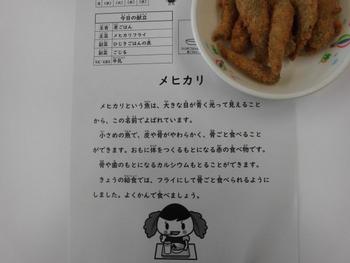 今日の献立
主食 麦ごはん
主菜 メヒカリフライ
副菜 ひじきごはんの具
副菜 ごじる
牛乳
メヒカリ
メヒカリという魚は、大きな目が青く光って見えること
から、この名前でよばれています。
小さめの魚で、皮や骨がやわらかく、骨ごと食べること
ができます。おもに体をつくるもとになる赤の食べ物です。
骨や歯のもとになるカルシウムもとることができます。
きょうの給食では、フライにして骨ごと食べられるように
しました。よくかんで食べましょう。